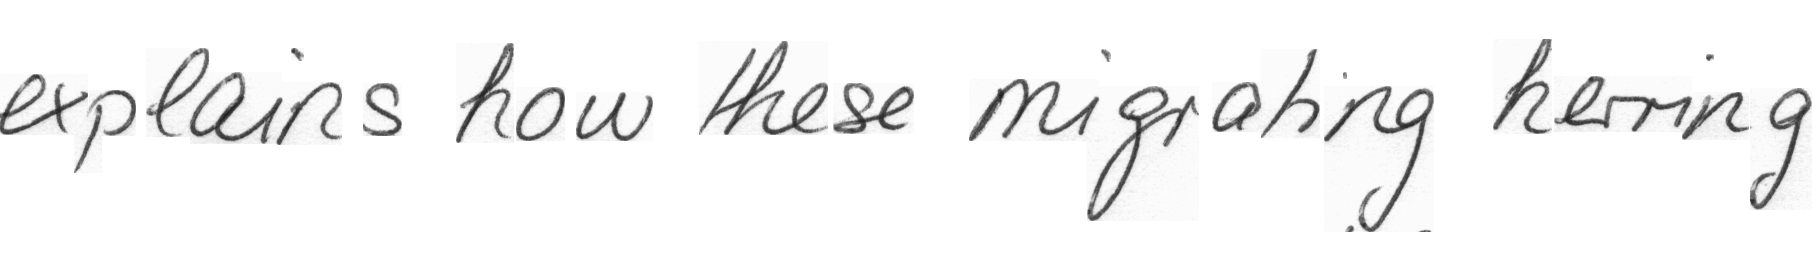 explains how these migrating herring